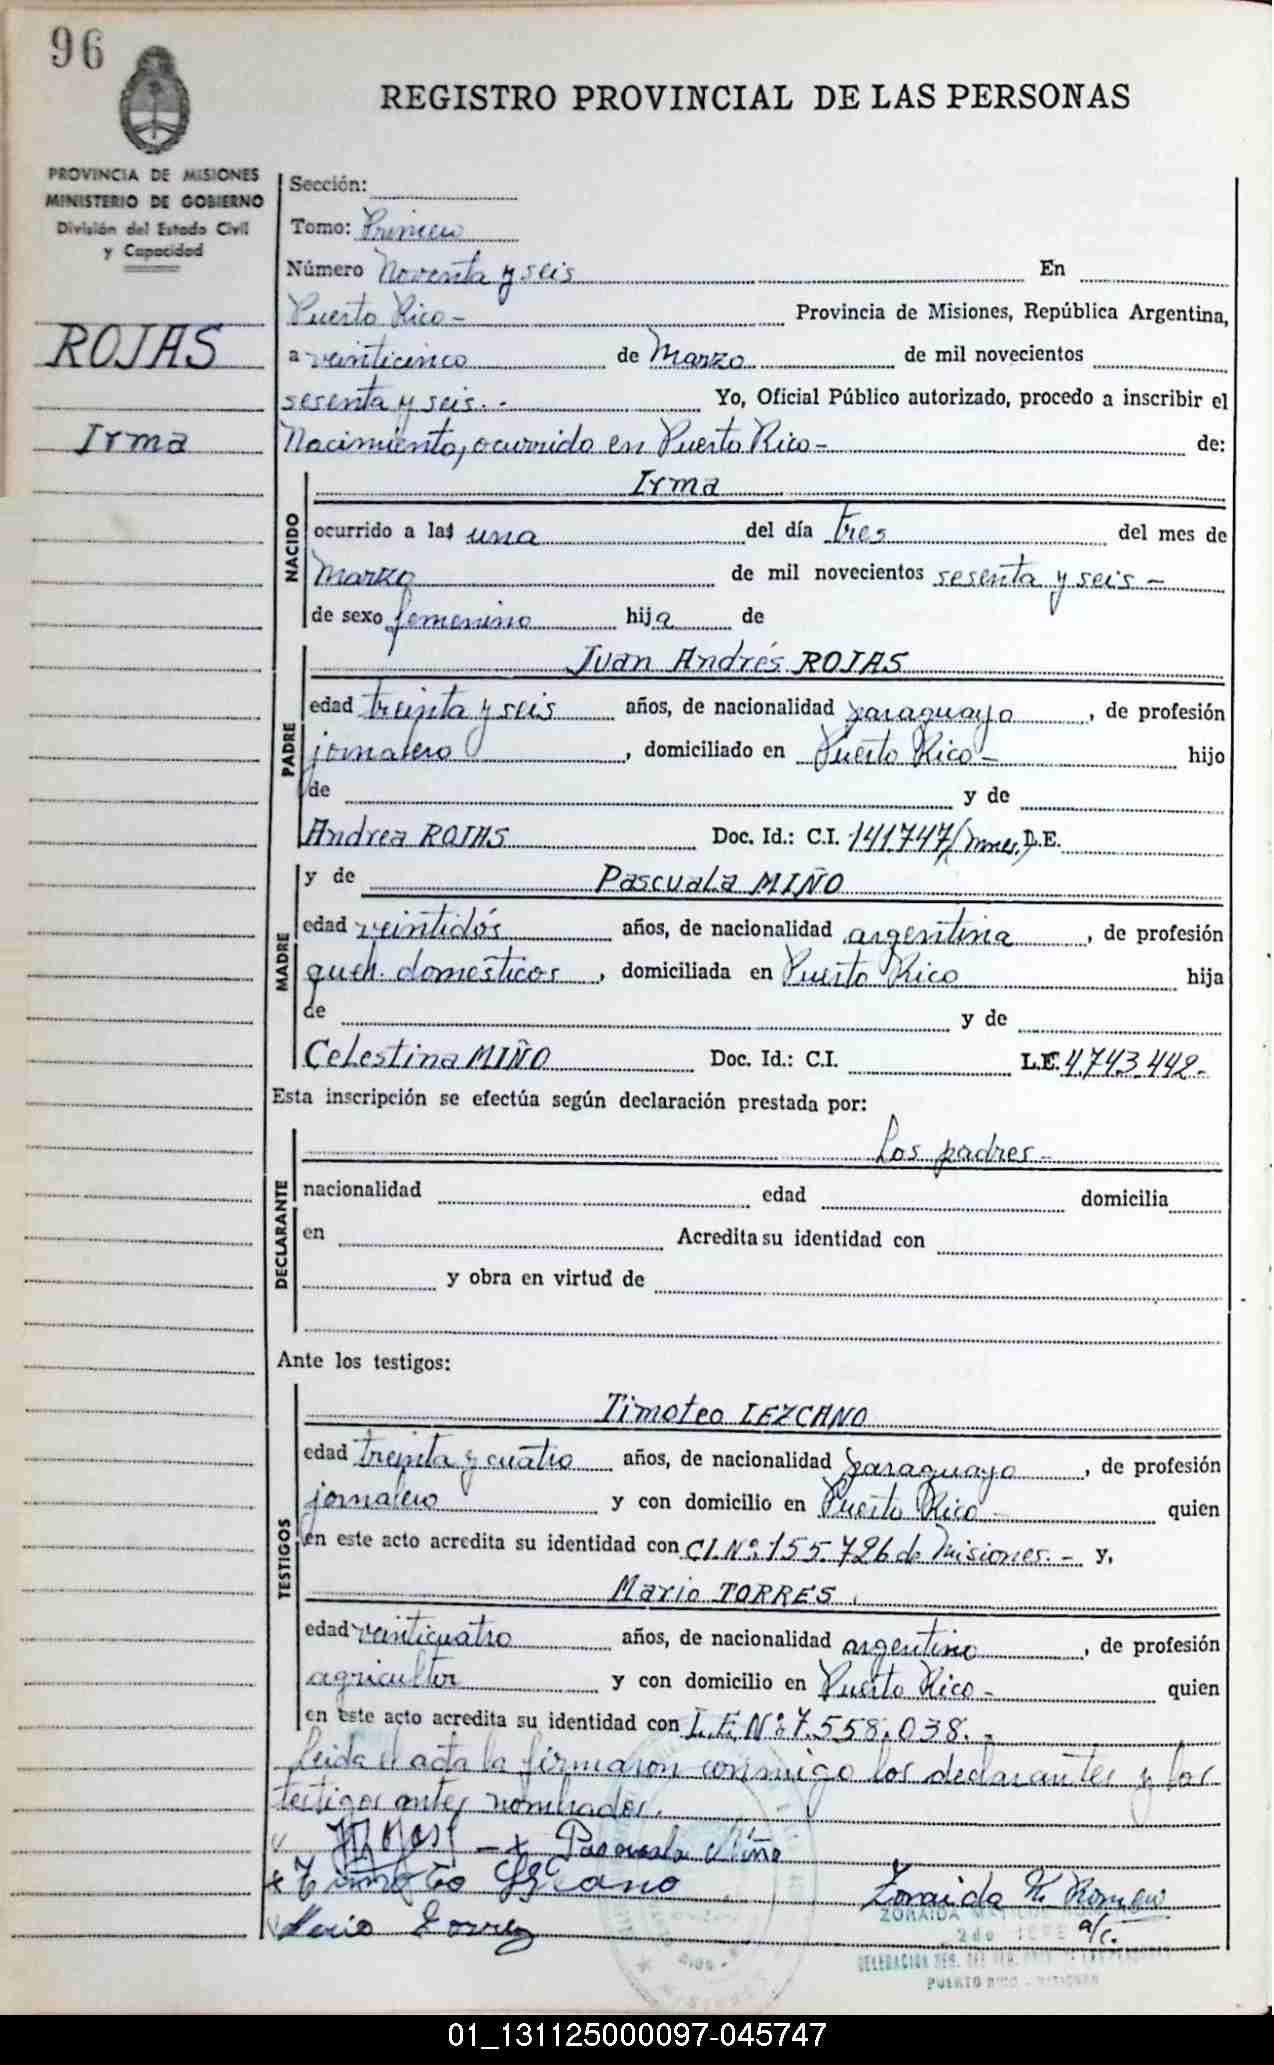 96
REGISTRO PROVINCIAL DE LAS PERSONAS
PROVINCIA DE MISIONES
MINISTERIO DE GOBIERNO
División del Estado Civil
y Capacidad
ROJAS
Irma
Sección:
Tomo: Primero
Número Noventa y seis En
Puerto Rico - Provincia de Misiones, República Argentina,
a veinticinco de Marzo de mil novecientos
sesenta y seis.- Yo, Oficial Público autorizado, procedo a inscribir el
Nacimiento, ocurrido en Puerto Rico - de:
NACIDO
Irma
ocurrido a las una del día tres del mes de
Marzo de mil novecientos sesenta y seis -
de sexo femenino hija de
PADRE
Juan Andrés ROJAS
edad treinta y seis años, de nacionalidad paraguayo, de profesión
jornalero, domiciliado en Puerto Rico - hijo
de y de
Andrea ROJAS Doc. Id.: C.I. 141.747/mnes. D.E.
MADRE
y de Pascuala MIÑO
edad veintidós años, de nacionalidad argentina, de profesión
queh. domésticos, domiciliada en Puerto Rico hija
de y de
Celestina MIÑO Doc. Id.: C.I. L.E. 4.743.442.-
Esta inscripción se efectúa según declaración prestada por:
DECLARANTE
Los padres -
nacionalidad edad domicilia
en Acredita su identidad con
y obra en virtud de
Ante los testigos:
TESTIGOS
Timoteo LEZCANO
edad treinta y cuatro años, de nacionalidad paraguayo, de profesión
jornalero y con domicilio en Puerto Rico - quien
en este acto acredita su identidad con C.I. Nº 155.726 de Misiones. - y,
Mario TORRES
edad veinticuatro años, de nacionalidad argentino, de profesión
agricultor y con domicilio en Puerto Rico - quien
en este acto acredita su identidad con L.E. Nº 7.558.038.-
Leida el acta la firmaron conmigo los declarantes y los
testigos antes nombrados.
Pascuala Miño
Timoteo Lezcano
Zoraida K. Romero
Mario Torres
ZORAIDA
a/c.
2do JEFE
PUERTO RICO - MISIONES
01_131125000097-045747